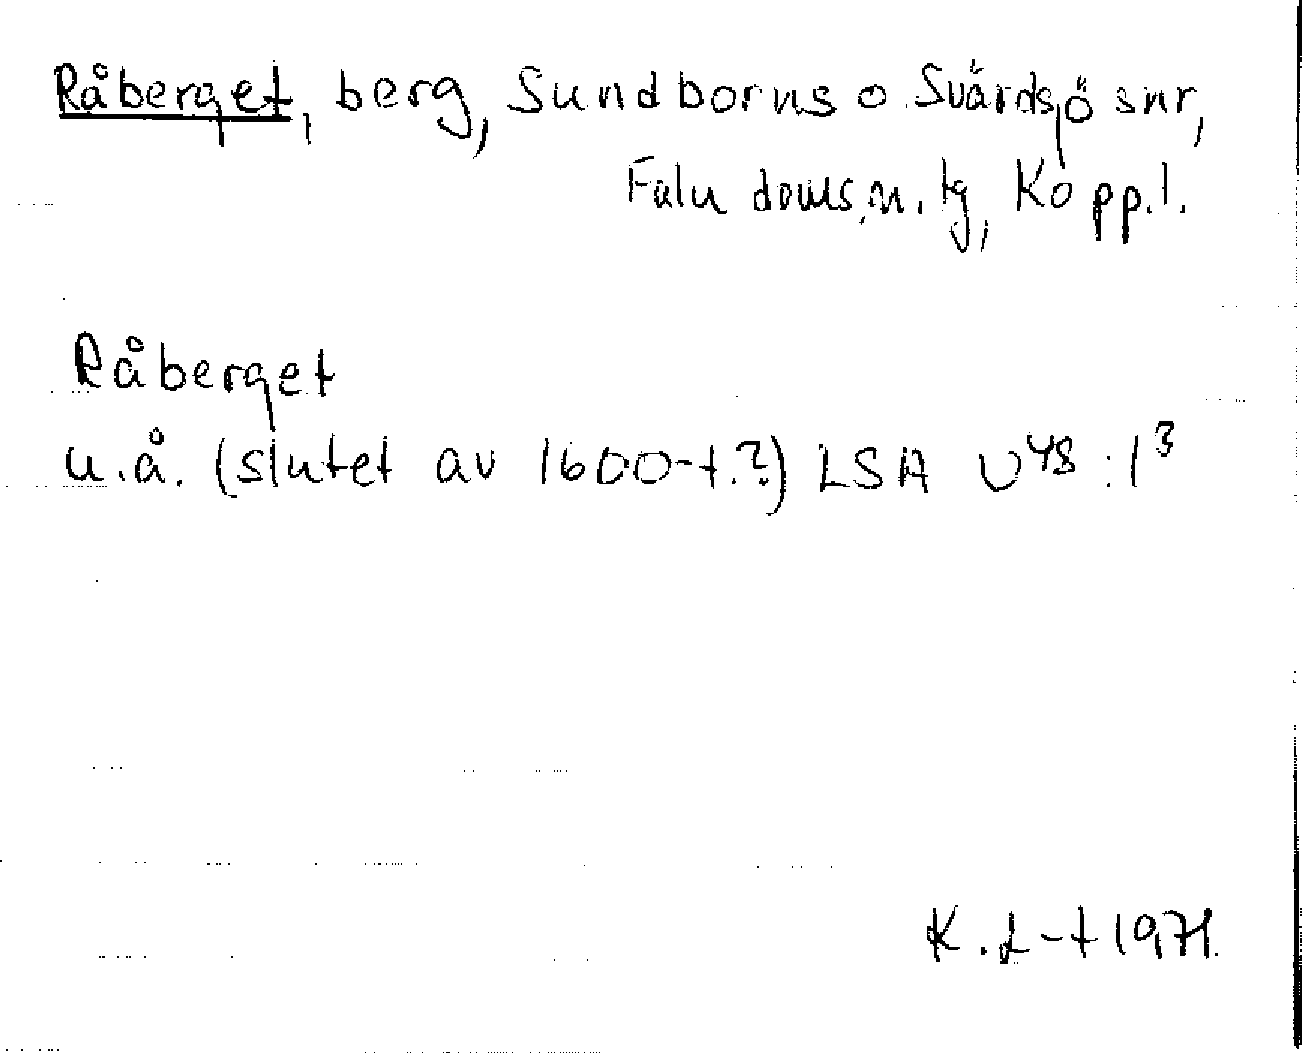 Råberget, berg, Sundborns o Svärdsjö snr,
Falu doms.n. tg, Kopp.l.
Råberget
u.å. (slutet av 1600-t.?) LSA U48:1³
K. L-t 1971.